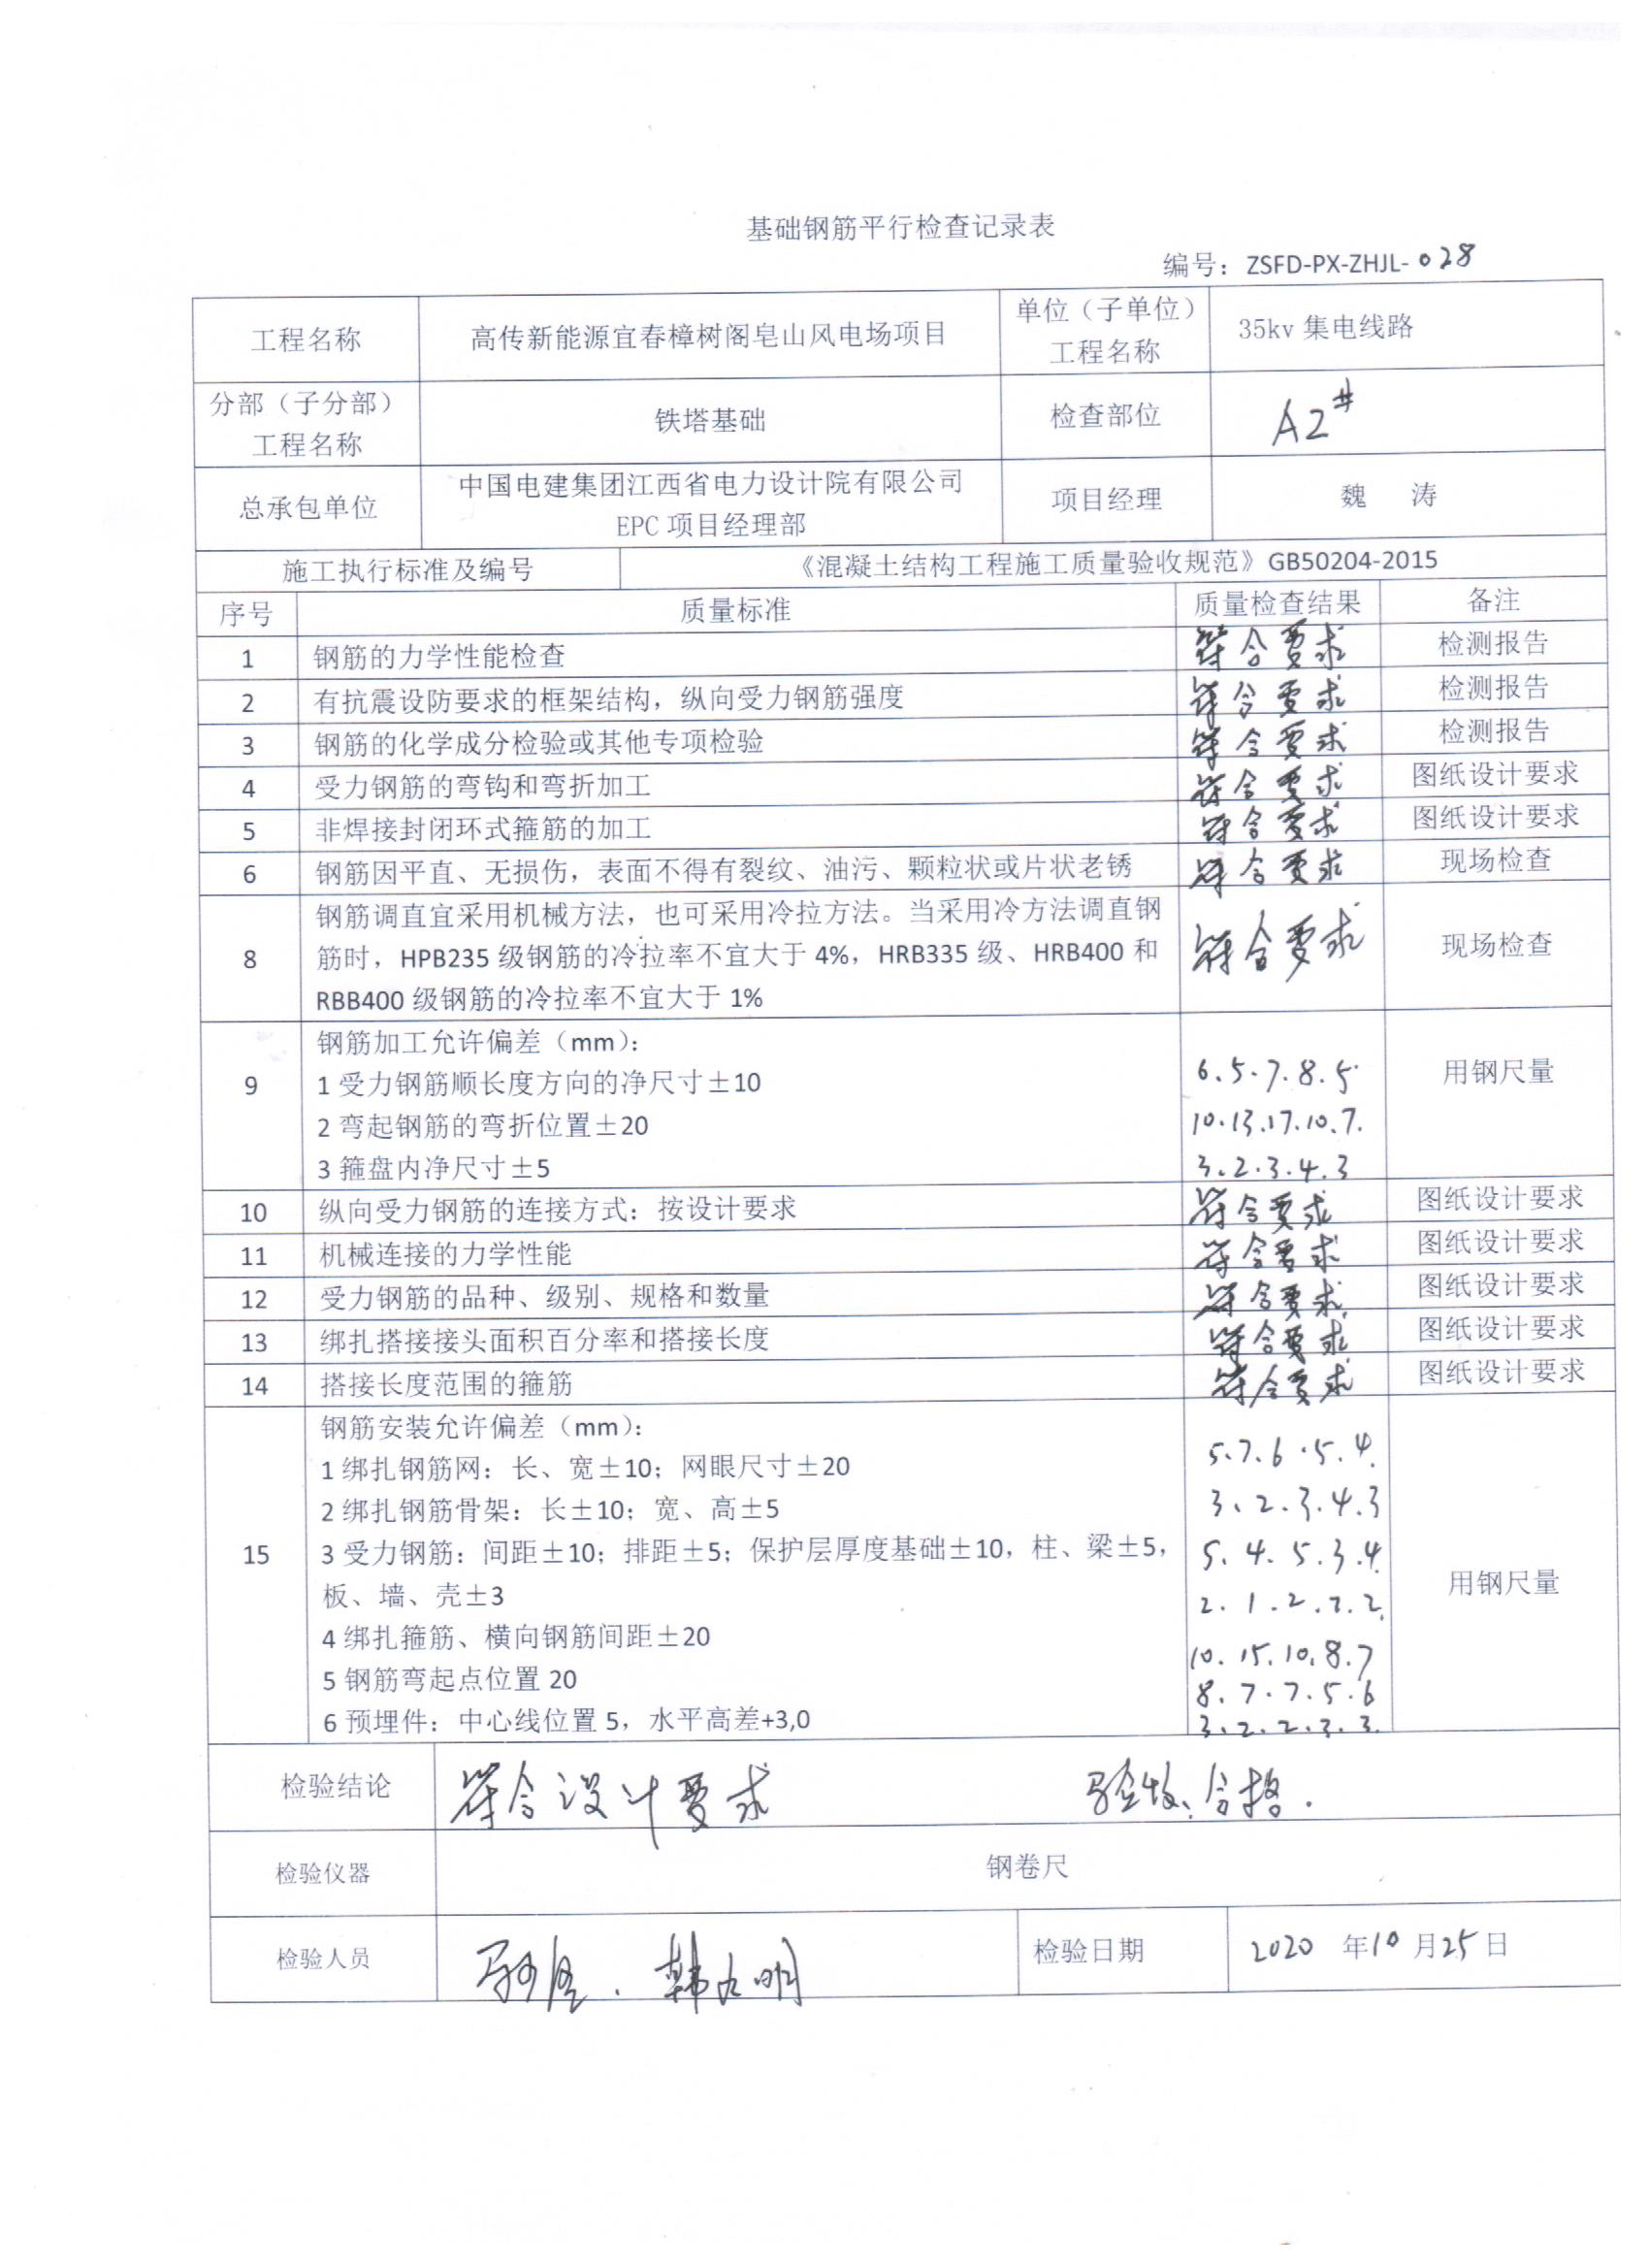 基础钢筋平行检查记录表
编号：ZSFD-PX-ZHJL-028
工程名称 高传新能源宜春樟树阁皂山风电场项目 单位（子单位）工程名称 35kv 集电线路
分部（子分部）工程名称 铁塔基础 检查部位 A2#
总承包单位 中国电建集团江西省电力设计院有限公司 EPC 项目经理部 项目经理 魏 涛
施工执行标准及编号 《混凝土结构工程施工质量验收规范》GB50204-2015
序号 质量标准 质量检查结果 备注
1 钢筋的力学性能检查 符合要求 检测报告
2 有抗震设防要求的框架结构，纵向受力钢筋强度 符合要求 检测报告
3 钢筋的化学成分检验或其他专项检验 符合要求 检测报告
4 受力钢筋的弯钩和弯折加工 符合要求 图纸设计要求
5 非焊接封闭环式箍筋的加工 符合要求 图纸设计要求
6 钢筋因平直、无损伤，表面不得有裂纹、油污、颗粒状或片状老锈 符合要求 现场检查
钢筋调直宜采用机械方法，也可采用冷拉方法。当采用冷方法调直钢
8 筋时，HPB235 级钢筋的冷拉率不宜大于 4%，HRB335 级、HRB400 和 符合要求 现场检查
RBB400 级钢筋的冷拉率不宜大于 1%
钢筋加工允许偏差（mm）：
9 1 受力钢筋顺长度方向的净尺寸±10 6.5.7.8.5 用钢尺量
2 弯起钢筋的弯折位置±20 10.13.17.10.7.
3 箍盘内净尺寸±5 3.2.3.4.3
10 纵向受力钢筋的连接方式：按设计要求 符合要求 图纸设计要求
11 机械连接的力学性能 符合要求 图纸设计要求
12 受力钢筋的品种、级别、规格和数量 符合要求 图纸设计要求
13 绑扎搭接接头面积百分率和搭接长度 符合要求 图纸设计要求
14 搭接长度范围的箍筋 符合要求 图纸设计要求
钢筋安装允许偏差（mm）：
1 绑扎钢筋网：长、宽±10；网眼尺寸±20 5.7.6.5.4.
2 绑扎钢筋骨架：长±10；宽、高±5 3.2.3.4.3
15 3 受力钢筋：间距±10；排距±5；保护层厚度基础±10，柱、梁±5， 5.4.5.3.4. 用钢尺量
板、墙、壳±3 2.1.2.2.2.
4 绑扎箍筋、横向钢筋间距±20 10.15.10.8.7
5 钢筋弯起点位置 20 8.7.7.5.6
6 预埋件：中心线位置 5，水平高差+3,0 3.2.2.3.3.
检验结论 符合设计要求 验收合格.
检验仪器 钢卷尺
检验人员 韩九明 检验日期 2020 年10 月25日